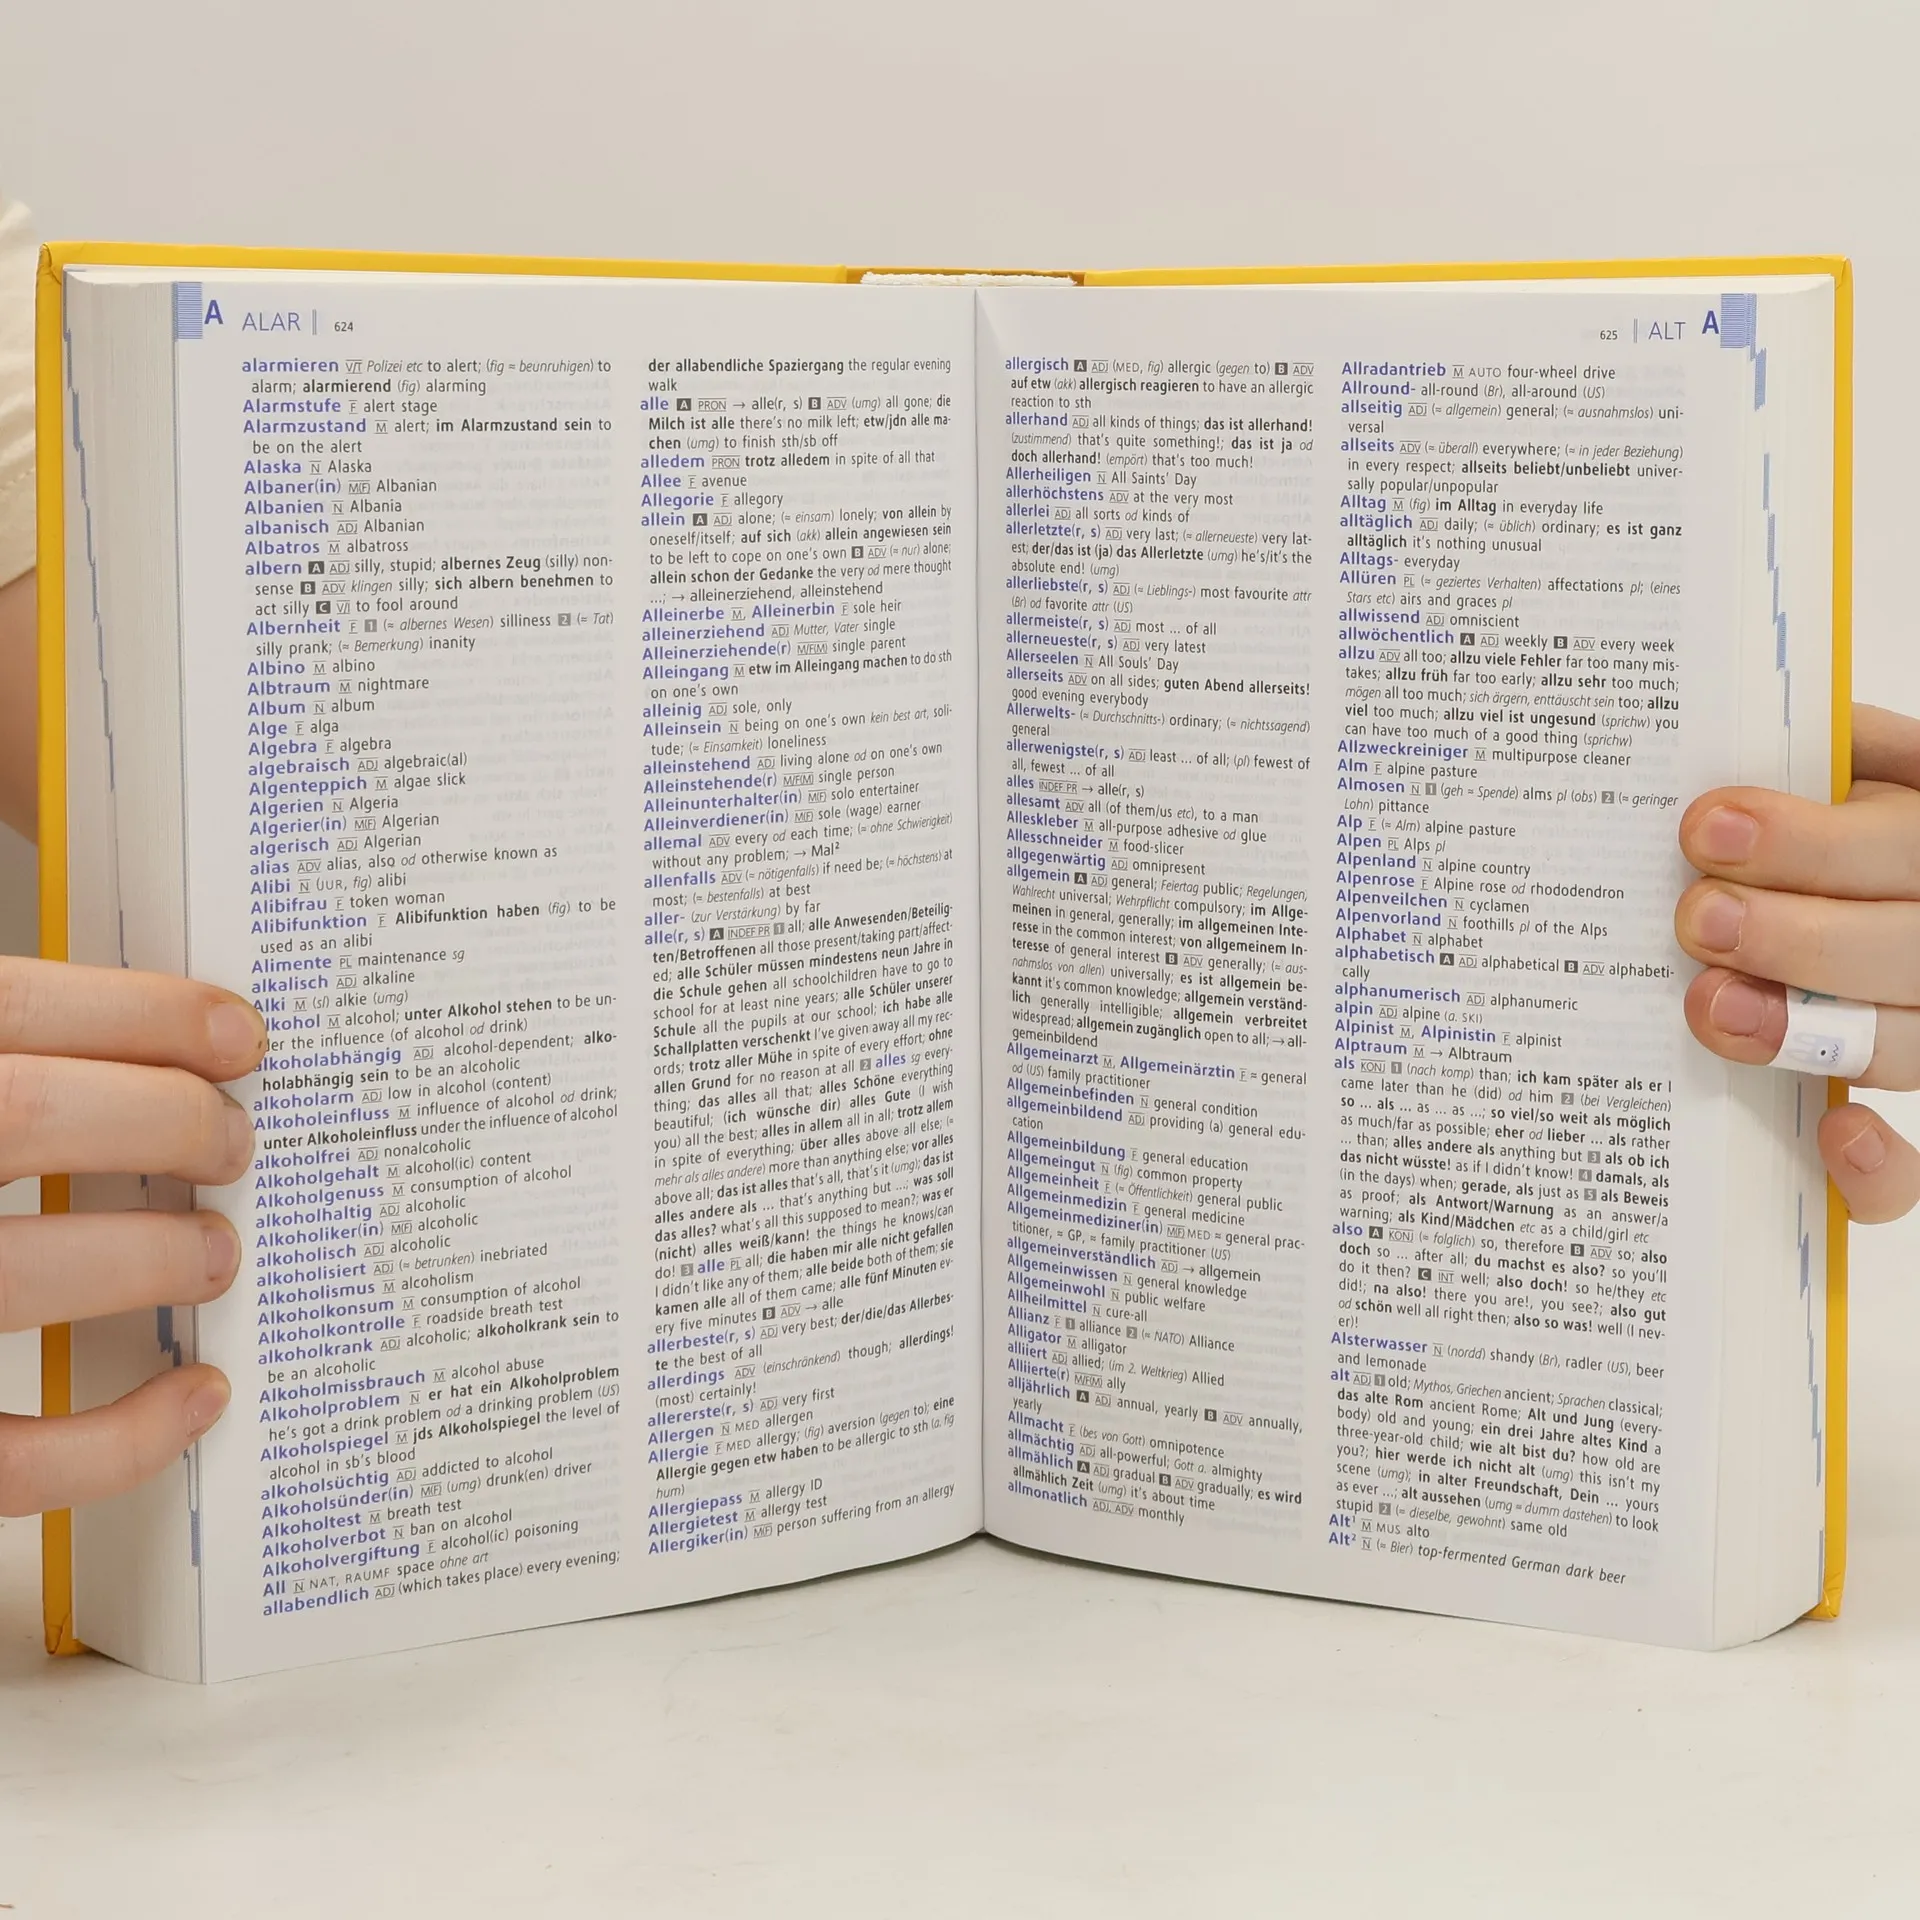 A ALAR 624
alarmieren V/T Polizei etc to alert; (fig ≈ beunruhigen) to
alarm; alarmierend (fig) alarming
Alarmstufe F alert stage
Alarmzustand M alert; im Alarmzustand sein to
be on the alert
Alaska N Alaska
Albaner(in) M(F) Albanian
Albanien N Albania
albanisch ADJ Albanian
Albatros M albatross
albern A ADJ silly, stupid; albernes Zeug (silly) non-
sense B ADV klingen silly; sich albern benehmen to
act silly C V/I to fool around
Albernheit F 1 (≈ albernes Wesen) silliness 2 (≈ Tat)
silly prank; (≈ Bemerkung) inanity
Albino M albino
Albtraum M nightmare
Album N album
Alge F alga
Algebra F algebra
algebraisch ADJ algebraic(al)
Algenteppich M algae slick
Algerien N Algeria
Algerier(in) M(F) Algerian
algerisch ADJ Algerian
alias ADV alias, also od otherwise known as
Alibi N (JUR, fig) alibi
Alibifrau F token woman
Alibifunktion F Alibifunktion haben (fig) to be
used as an alibi
Alimente PL maintenance sg
alkalisch ADJ alkaline
Alki M (sl) alkie (umg)
lkohol M alcohol; unter Alkohol stehen to be un-
der the influence (of alcohol od drink)
alkoholabhängig ADJ alcohol-dependent; alko-
holabhängig sein to be an alcoholic
alkoholarm ADJ low in alcohol (content)
Alkoholeinfluss M influence of alcohol od drink;
unter Alkoholeinfluss under the influence of alcohol
alkoholfrei ADJ nonalcoholic
Alkoholgehalt M alcohol(ic) content
Alkoholgenuss M consumption of alcohol
alkoholhaltig ADJ alcoholic
Alkoholiker(in) M(F) alcoholic
alkoholisch ADJ alcoholic
alkoholisiert ADJ (≈ betrunken) inebriated
Alkoholismus M alcoholism
Alkoholkonsum M consumption of alcohol
Alkoholkontrolle F roadside breath test
alkoholkrank ADJ alcoholic; alkoholkrank sein to
be an alcoholic
Alkoholmissbrauch M alcohol abuse
Alkoholproblem N er hat ein Alkoholproblem
he's got a drink problem od a drinking problem (US)
Alkoholspiegel M jds Alkoholspiegel the level of
alcohol in sb's blood
alkoholsüchtig ADJ addicted to alcohol
Alkoholsünder(in) M(F) (umg) drunk(en) driver
Alkoholtest M breath test
Alkoholverbot N ban on alcohol
Alkoholvergiftung F alcohol(ic) poisoning
All N NAT, RAUMF space ohne art
allabendlich ADJ (which takes place) every evening;
der allabendliche Spaziergang the regular evening
walk
alle A PRON → alle(r, s) B ADV (umg) all gone; die
Milch ist alle there's no milk left; etw/jdn alle ma-
chen (umg) to finish sth/sb off
alledem PRON trotz alledem in spite of all that
Allee F avenue
Allegorie F allegory
allein A ADJ alone; (≈ einsam) lonely; von allein by
oneself/itself; auf sich (akk) allein angewiesen sein
to be left to cope on one's own B ADV (≈ nur) alone;
allein schon der Gedanke the very od mere thought
...; → alleinerziehend, alleinstehend
Alleinerbe M, Alleinerbin F sole heir
alleinerziehend ADJ Mutter, Vater single
Alleinerziehende(r) M/F(M) single parent
Alleingang M etw im Alleingang machen to do sth
on one's own
alleinig ADJ sole, only
Alleinsein N being on one's own kein best art, soli-
tude; (≈ Einsamkeit) loneliness
alleinstehend ADJ living alone od on one's own
Alleinstehende(r) M/F(M) single person
Alleinunterhalter(in) M(F) solo entertainer
Alleinverdiener(in) M(F) sole (wage) earner
allemal ADV every od each time; (≈ ohne Schwierigkeit)
without any problem; → Mal²
allenfalls ADV (≈ nötigenfalls) if need be; (≈ höchstens) at
most; (≈ bestenfalls) at best
aller- (zur Verstärkung) by far
alle(r, s) A INDEF PR 1 all; alle Anwesenden/Beteilig-
ten/Betroffenen all those present/taking part/affect-
ed; alle Schüler müssen mindestens neun Jahre in
die Schule gehen all schoolchildren have to go to
school for at least nine years; alle Schüler unserer
Schule all the pupils at our school; ich habe alle
Schallplatten verschenkt I've given away all my rec-
ords; trotz aller Mühe in spite of every effort; ohne
allen Grund for no reason at all 2 alles sg every-
thing; das alles all that; alles Schöne everything
beautiful; (ich wünsche dir) alles Gute (I wish
you) all the best; alles in allem all in all; trotz allem
in spite of everything; über alles above all else; (≈
mehr als alles andere) more than anything else; vor alles
above all; das ist alles that's all, that's it (umg); das ist
alles andere als ... that's anything but ...; was soll
das alles? what's all this supposed to mean?; was er
(nicht) alles weiß/kann! the things he knows/can
do! 3 alle PL all; die haben mir alle nicht gefallen
I didn't like any of them; alle beide both of them; sie
kamen alle all of them came; alle fünf Minuten ev-
ery five minutes B ADV → alle
allerbeste(r, s) ADJ very best; der/die/das Allerbes-
te the best of all
allerdings ADV (einschränkend) though; allerdings!
(most) certainly!
allererste(r, s) ADJ very first
Allergen N MED allergen
Allergie F MED allergy; (fig) aversion (gegen to); eine
Allergie gegen etw haben to be allergic to sth (a. fig
hum)
Allergiepass M allergy ID
Allergietest M allergy test
Allergiker(in) M(F) person suffering from an allergy
625 ALT A
allergisch A ADJ (MED, fig) allergic (gegen to) B ADV
auf etw (akk) allergisch reagieren to have an allergic
reaction to sth
allerhand ADJ all kinds of things; das ist allerhand!
(zustimmend) that's quite something!; das ist ja od
doch allerhand! (empört) that's too much!
Allerheiligen N All Saints' Day
allerhöchstens ADV at the very most
allerlei ADJ all sorts od kinds of
allerletzte(r, s) ADJ very last; (≈ allerneueste) very lat-
est; der/das ist (ja) das Allerletzte (umg) he's/it's the
absolute end! (umg)
allerliebste(r, s) ADJ (≈ Lieblings-) most favourite attr
(Br) od favorite attr (US)
allermeiste(r, s) ADJ most ... of all
allerneueste(r, s) ADJ very latest
Allerseelen N All Souls' Day
allerseits ADV on all sides; guten Abend allerseits!
good evening everybody
Allerwelts- (≈ Durchschnitts-) ordinary; (≈ nichtssagend)
general
allerwenigste(r, s) ADJ least ... of all; (pl) fewest of
all, fewest ... of all
alles INDEF PR → alle(r, s)
allesamt ADV all (of them/us etc), to a man
Alleskleber M all-purpose adhesive od glue
Allesschneider M food-slicer
allgegenwärtig ADJ omnipresent
allgemein A ADJ general; Feiertag public; Regelungen,
Wahlrecht universal; Wehrpflicht compulsory; im Allge-
meinen in general, generally; im allgemeinen Inte-
resse in the common interest; von allgemeinem In-
teresse of general interest B ADV generally; (≈ aus-
nahmslos von allen) universally; es ist allgemein be-
kannt it's common knowledge; allgemein verständ-
lich generally intelligible; allgemein verbreitet
widespread; allgemein zugänglich open to all; → all-
gemeinbildend
Allgemeinarzt M, Allgemeinärztin F ≈ general
od (US) family practitioner
Allgemeinbefinden N general condition
allgemeinbildend ADJ providing (a) general edu-
cation
Allgemeinbildung F general education
Allgemeingut N (fig) common property
Allgemeinheit F (≈ Öffentlichkeit) general public
Allgemeinmedizin F general medicine
Allgemeinmediziner(in) M(F) MED ≈ general prac-
titioner, ≈ GP, ≈ family practitioner (US)
allgemeinverständlich ADJ → allgemein
Allgemeinwissen N general knowledge
Allgemeinwohl N public welfare
Allheilmittel N cure-all
Allianz F 1 alliance 2 (≈ NATO) Alliance
Alligator M alligator
alliiert ADJ allied; (im 2. Weltkrieg) Allied
Alliierte(r) M/F(M) ally
alljährlich A ADJ annual, yearly B ADV annually,
yearly
Allmacht F (bes von Gott) omnipotence
allmächtig ADJ all-powerful; Gott a. almighty
allmählich A ADJ gradual B ADV gradually; es wird
allmählich Zeit (umg) it's about time
allmonatlich ADJ, ADV monthly
Allradantrieb M AUTO four-wheel drive
Allround- all-round (Br), all-around (US)
allseitig ADJ (≈ allgemein) general; (≈ ausnahmslos) uni-
versal
allseits ADV (≈ überall) everywhere; (≈ in jeder Beziehung)
in every respect; allseits beliebt/unbeliebt univer-
sally popular/unpopular
Alltag M (fig) im Alltag in everyday life
alltäglich ADJ daily; (≈ üblich) ordinary; es ist ganz
alltäglich it's nothing unusual
Alltags- everyday
Allüren PL (≈ geziertes Verhalten) affectations pl; (eines
Stars etc) airs and graces pl
allwissend ADJ omniscient
allwöchentlich A ADJ weekly B ADV every week
allzu ADV all too; allzu viele Fehler far too many mis-
takes; allzu früh far too early; allzu sehr too much;
mögen all too much; sich ärgern, enttäuscht sein too; allzu
viel too much; allzu viel ist ungesund (sprichw) you
can have too much of a good thing (sprichw)
Allzweckreiniger M multipurpose cleaner
Alm F alpine pasture
Almosen N 1 (geh ≈ Spende) alms pl (obs) 2 (≈ geringer
Lohn) pittance
Alp F (≈ Alm) alpine pasture
Alpen PL Alps pl
Alpenland N alpine country
Alpenrose F Alpine rose od rhododendron
Alpenveilchen N cyclamen
Alpenvorland N foothills pl of the Alps
Alphabet N alphabet
alphabetisch A ADJ alphabetical B ADV alphabeti-
cally
alphanumerisch ADJ alphanumeric
alpin ADJ alpine (a. SKI)
Alpinist M, Alpinistin F alpinist
Alptraum M → Albtraum
als KONJ 1 (nach komp) than; ich kam später als er I
came later than he (did) od him 2 (bei Vergleichen)
so ... als ... as ... as ...; so viel/so weit als möglich
as much/far as possible; eher od lieber ... als rather
... than; alles andere als anything but 3 als ob ich
das nicht wüsste! as if I didn't know! 4 damals, als
(in the days) when; gerade, als just as 5 als Beweis
as proof; als Antwort/Warnung as an answer/a
warning; als Kind/Mädchen etc as a child/girl etc
also A KONJ (≈ folglich) so, therefore B ADV so; also
doch so ... after all; du machst es also? so you'll
do it then? C INT well; also doch! so he/they etc
did!; na also! there you are!, you see?; also gut
od schön well all right then; also so was! well (I nev-
er)!
Alsterwasser N (nordd) shandy (Br), radler (US), beer
and lemonade
alt ADJ 1 old; Mythos, Griechen ancient; Sprachen classical;
das alte Rom ancient Rome; Alt und Jung (every-
body) old and young; ein drei Jahre altes Kind a
three-year-old child; wie alt bist du? how old are
you?; hier werde ich nicht alt (umg) this isn't my
scene (umg); in alter Freundschaft, Dein ... yours
as ever ...; alt aussehen (umg ≈ dumm dastehen) to look
stupid 2 (≈ dieselbe, gewohnt) same old
Alt¹ M MUS alto
Alt² N (≈ Bier) top-fermented German dark beer